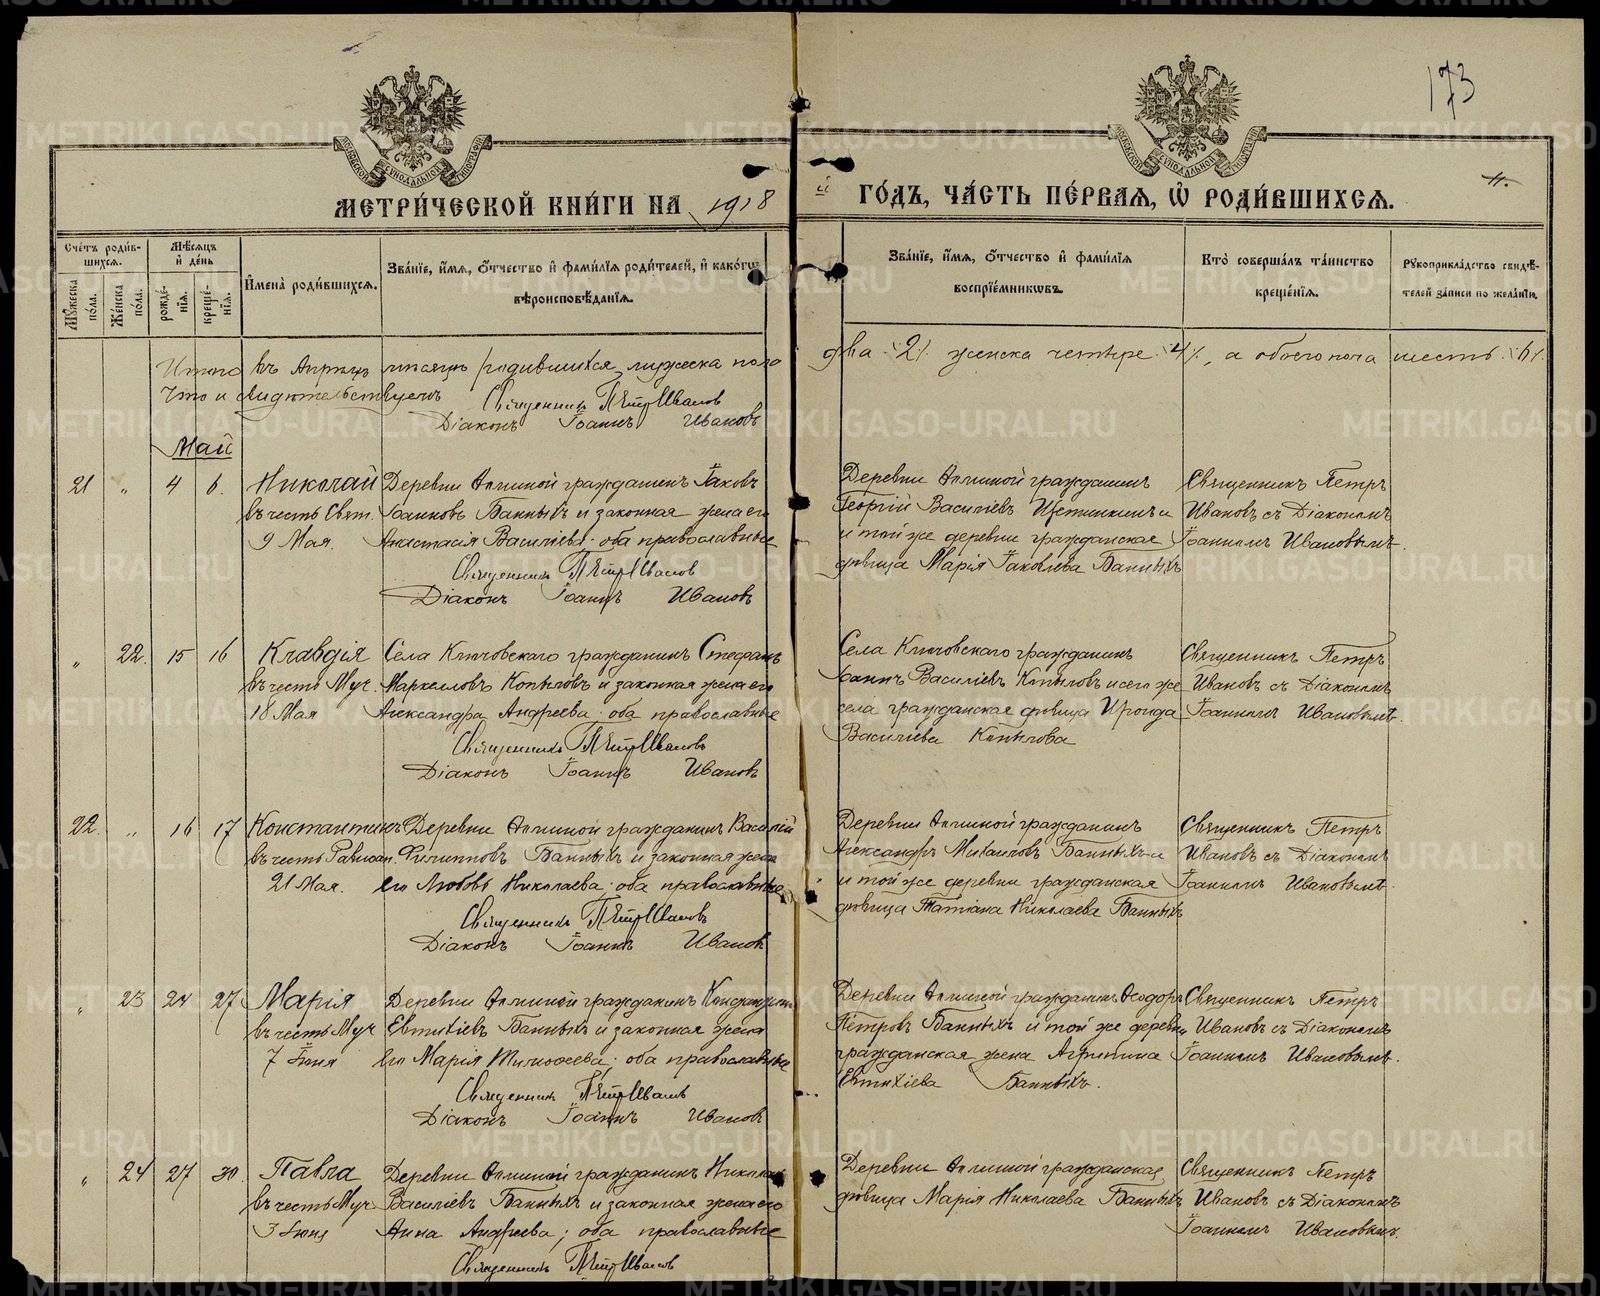 173
МОСКОВСКОЙ СѴНОДАЛЬНОЙ ТИПОГРАФІИ
МОСКОВСКОЙ СѴНОДАЛЬНОЙ ТИПОГРАФІИ
МЕТРИ́ЧЕСКОЙ КНИ́ГИ НА 1918 й ГО́ДЪ, ЧА́СТЬ ПЕ́РВАѦ, Ѡ҆ РОДИ́ВШИХСѦ.
Сче́тъ роди́в-
шихсѧ.
Мѣ́сѧцъ
и҆ де́нь
Мꙋ́жеска по́ла.
Же́нска по́ла.
рожде́-
нїѧ.
креще́-
нїѧ.
И҆мена̀ роди́вшихсѧ.
Зва́нїе, и҆́мѧ, ѻ҆́тчество и҆ фами́лїѧ роди́телей, и҆ како́гѡ
вѣроисповѣ́данїѧ.
Зва́нїе, и҆́мѧ, ѻ҆́тчество и҆ фами́лїѧ
воспрїе́мникѡвъ.
Кто̀ соверша́лъ та́инство
креще́нїѧ.
Рꙋкоприкла́дство свидѣ́-
телей за́писи по жела́нїю.
Итого въ Апрѣлѣ мѣсяцѣ родившихся мужеска пола два 2, женска четыре 4, а обоего пола шесть 6.
Что и свидѣтельствуемъ Священникъ Петръ Ивановъ
Діаконъ Іоаннъ Ивановъ
Май
21 " 4 6. Николай
въ честь Свят.
9 Мая.
Деревни Еланской гражданинъ Іаковъ
Іоанновъ Банныхъ и законная жена его
Анастасія Васильева; оба православные
Священникъ Петръ Ивановъ
Діаконъ Іоаннъ Ивановъ
Георгій Васильевъ
и той же деревни гражданская
дѣвица Марія Іаковлева Банныхъ
Священникъ Петръ
Ивановъ съ Діакономъ
Іоанномъ Ивановымъ.
" 22. 15 16 Клавдія
въ честь Муч.
18 Мая
Села Ключовскаго гражданинъ Стефанъ
Маркелловъ Копыловъ и законная жена его
Александра Андреева; оба православные
Священникъ Петръ Ивановъ
Діаконъ Іоаннъ Ивановъ
Села Ключовскаго гражданинъ
Іоаннъ Васильевъ Копыловъ и сего же
села гражданская дѣвица Ироида
Васильева Копылова
Священникъ Петръ
Ивановъ съ Діакономъ
Іоанномъ Ивановымъ.
22. " 16 17 Константинъ
въ честь Равноап.
21 Мая.
гражданинъ Василій
Филипповъ Банныхъ и законная жена
его Любовь Николаева; оба православные
Священникъ Петръ Ивановъ
Діаконъ Іоаннъ Ивановъ
гражданинъ
Александръ Михаиловъ Банныхъ
и той же деревни гражданская
дѣвица Татіана Николаева Банныхъ
Священникъ Петръ
Ивановъ съ Діакономъ
Іоанномъ Ивановымъ.
" 23 24 27 Марія
въ честь Муч
7 Іюня
гражданинъ
Евтихіевъ Банныхъ и законная жена
его Марія Тимофеева; оба православные
Священникъ Петръ Ивановъ
Діаконъ Іоаннъ Ивановъ
гражданинъ Ѳеодоръ
Петровъ Банныхъ и той же деревни
гражданская жена Агрипина
Евтихіева Банныхъ.
Священникъ Петръ
Ивановъ съ Діакономъ
Іоанномъ Ивановымъ.
" 24 27 30. Павла
въ честь Муч.
3 Іюня
гражданинъ Николай
Васильевъ Банныхъ и законная жена его
Анна Андреева; оба православные
Священникъ Петръ Ивановъ
гражданская
дѣвица Марія Николаева Банныхъ
Священникъ Петръ
Ивановъ съ Діакономъ
Іоанномъ Ивановымъ.
METRIKI.GASO-URAL.RU